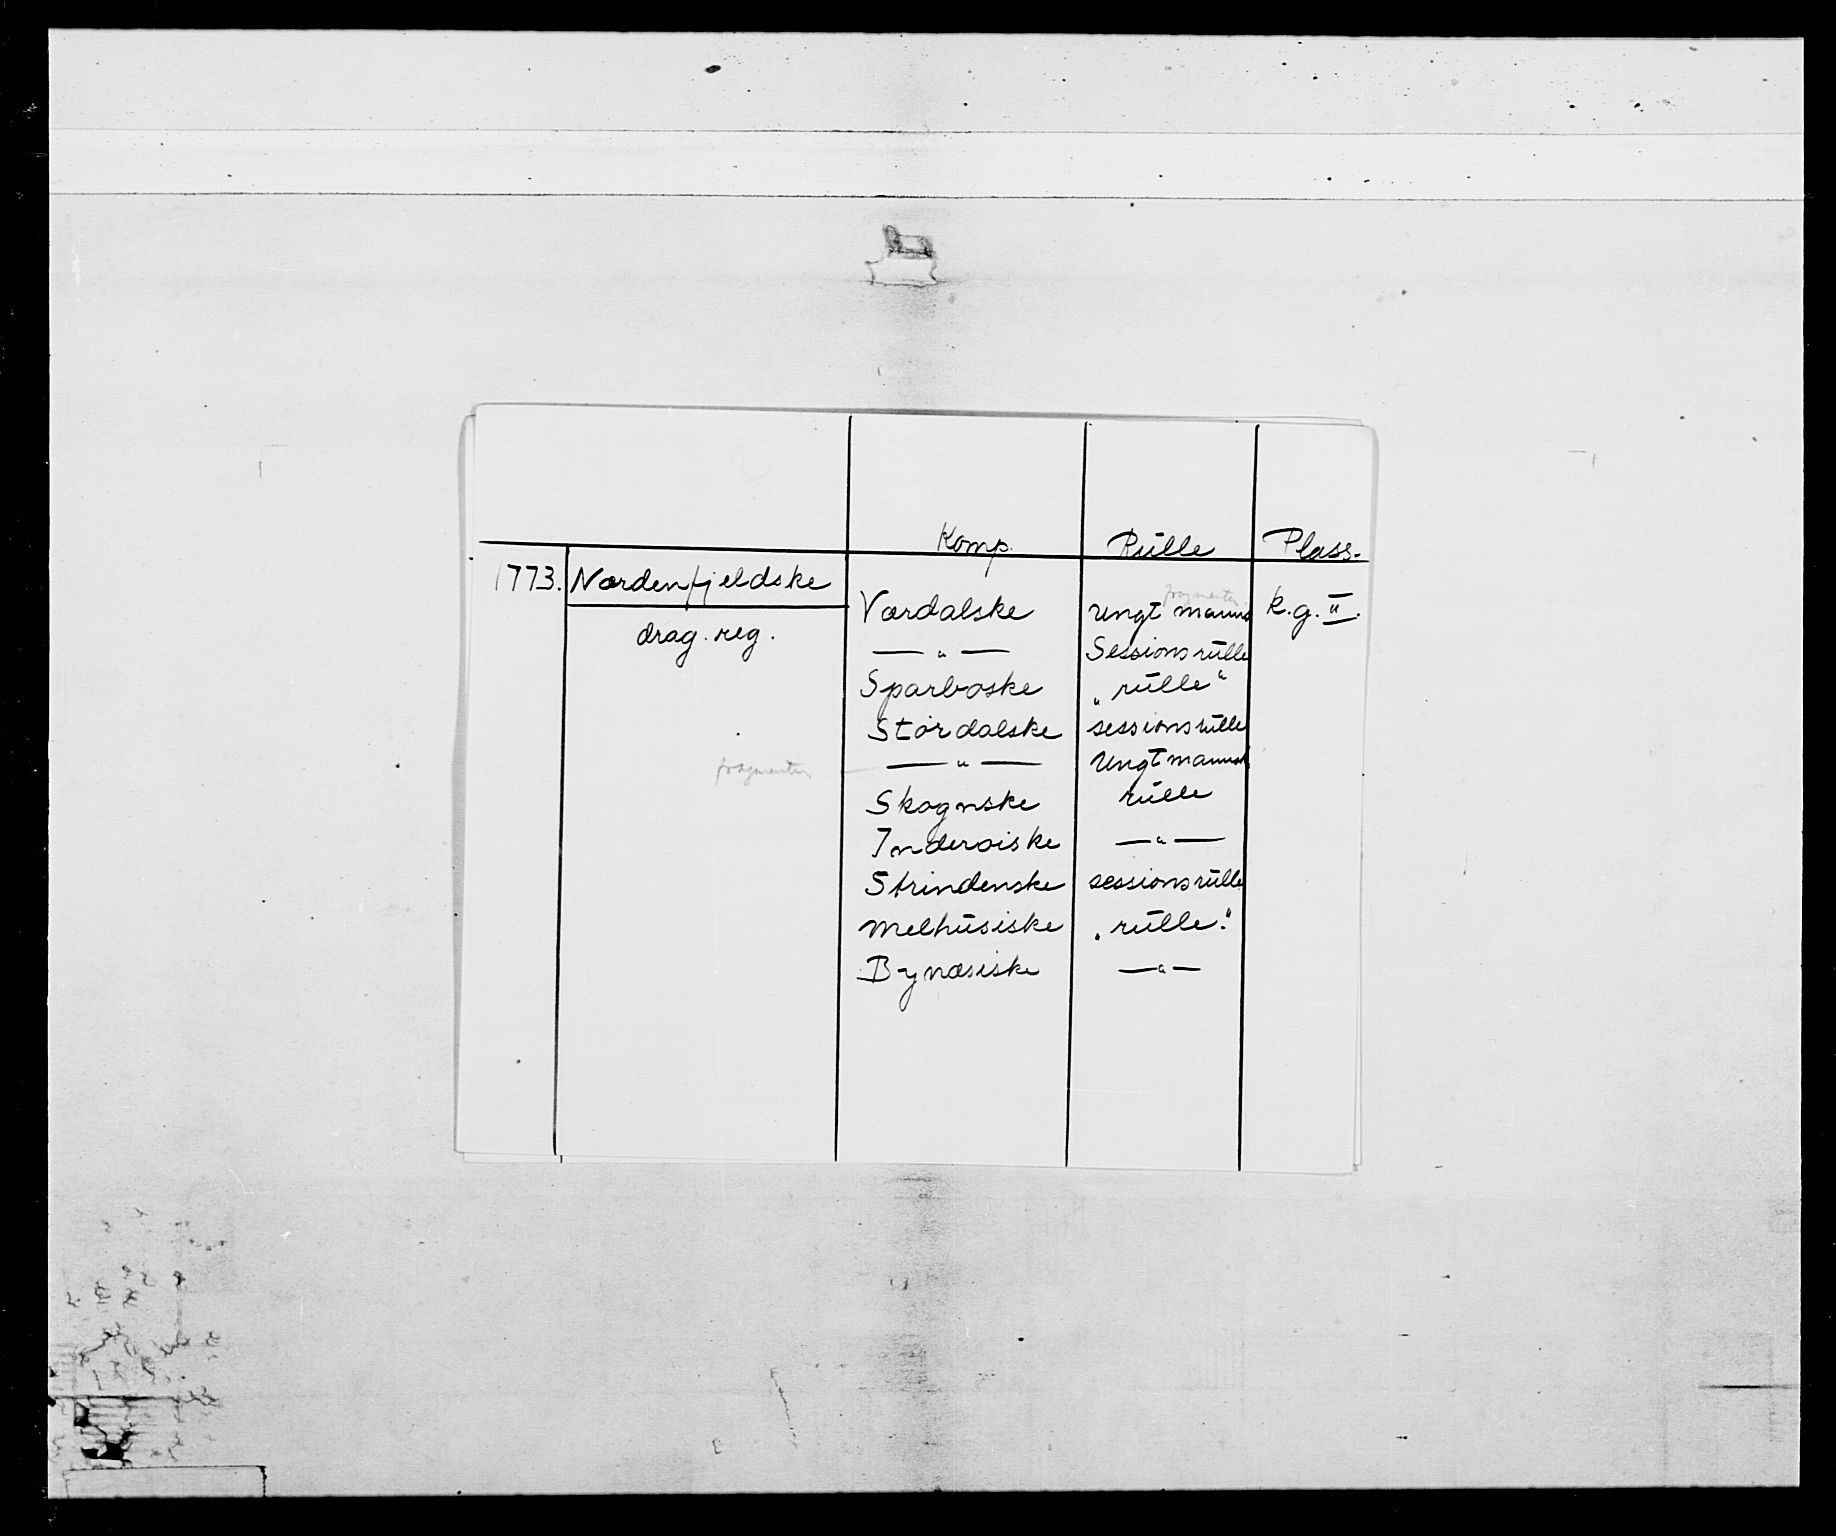 Komp. Rulle Plass.
1773. Nordenfjeldske
fragmenter
Værdalske Ungt manns k.g. II.
drag. reg.
— " — Sessionsrulle
Sparboske „ rulle "
Stördalske sessionsrulle
fragmenter — " — Ungt mannsk
Skognske rulle
Inderoiske — " —
Strindenske sessionsrulle
Melhusiske „ rulle."
Bynæsiske — " —